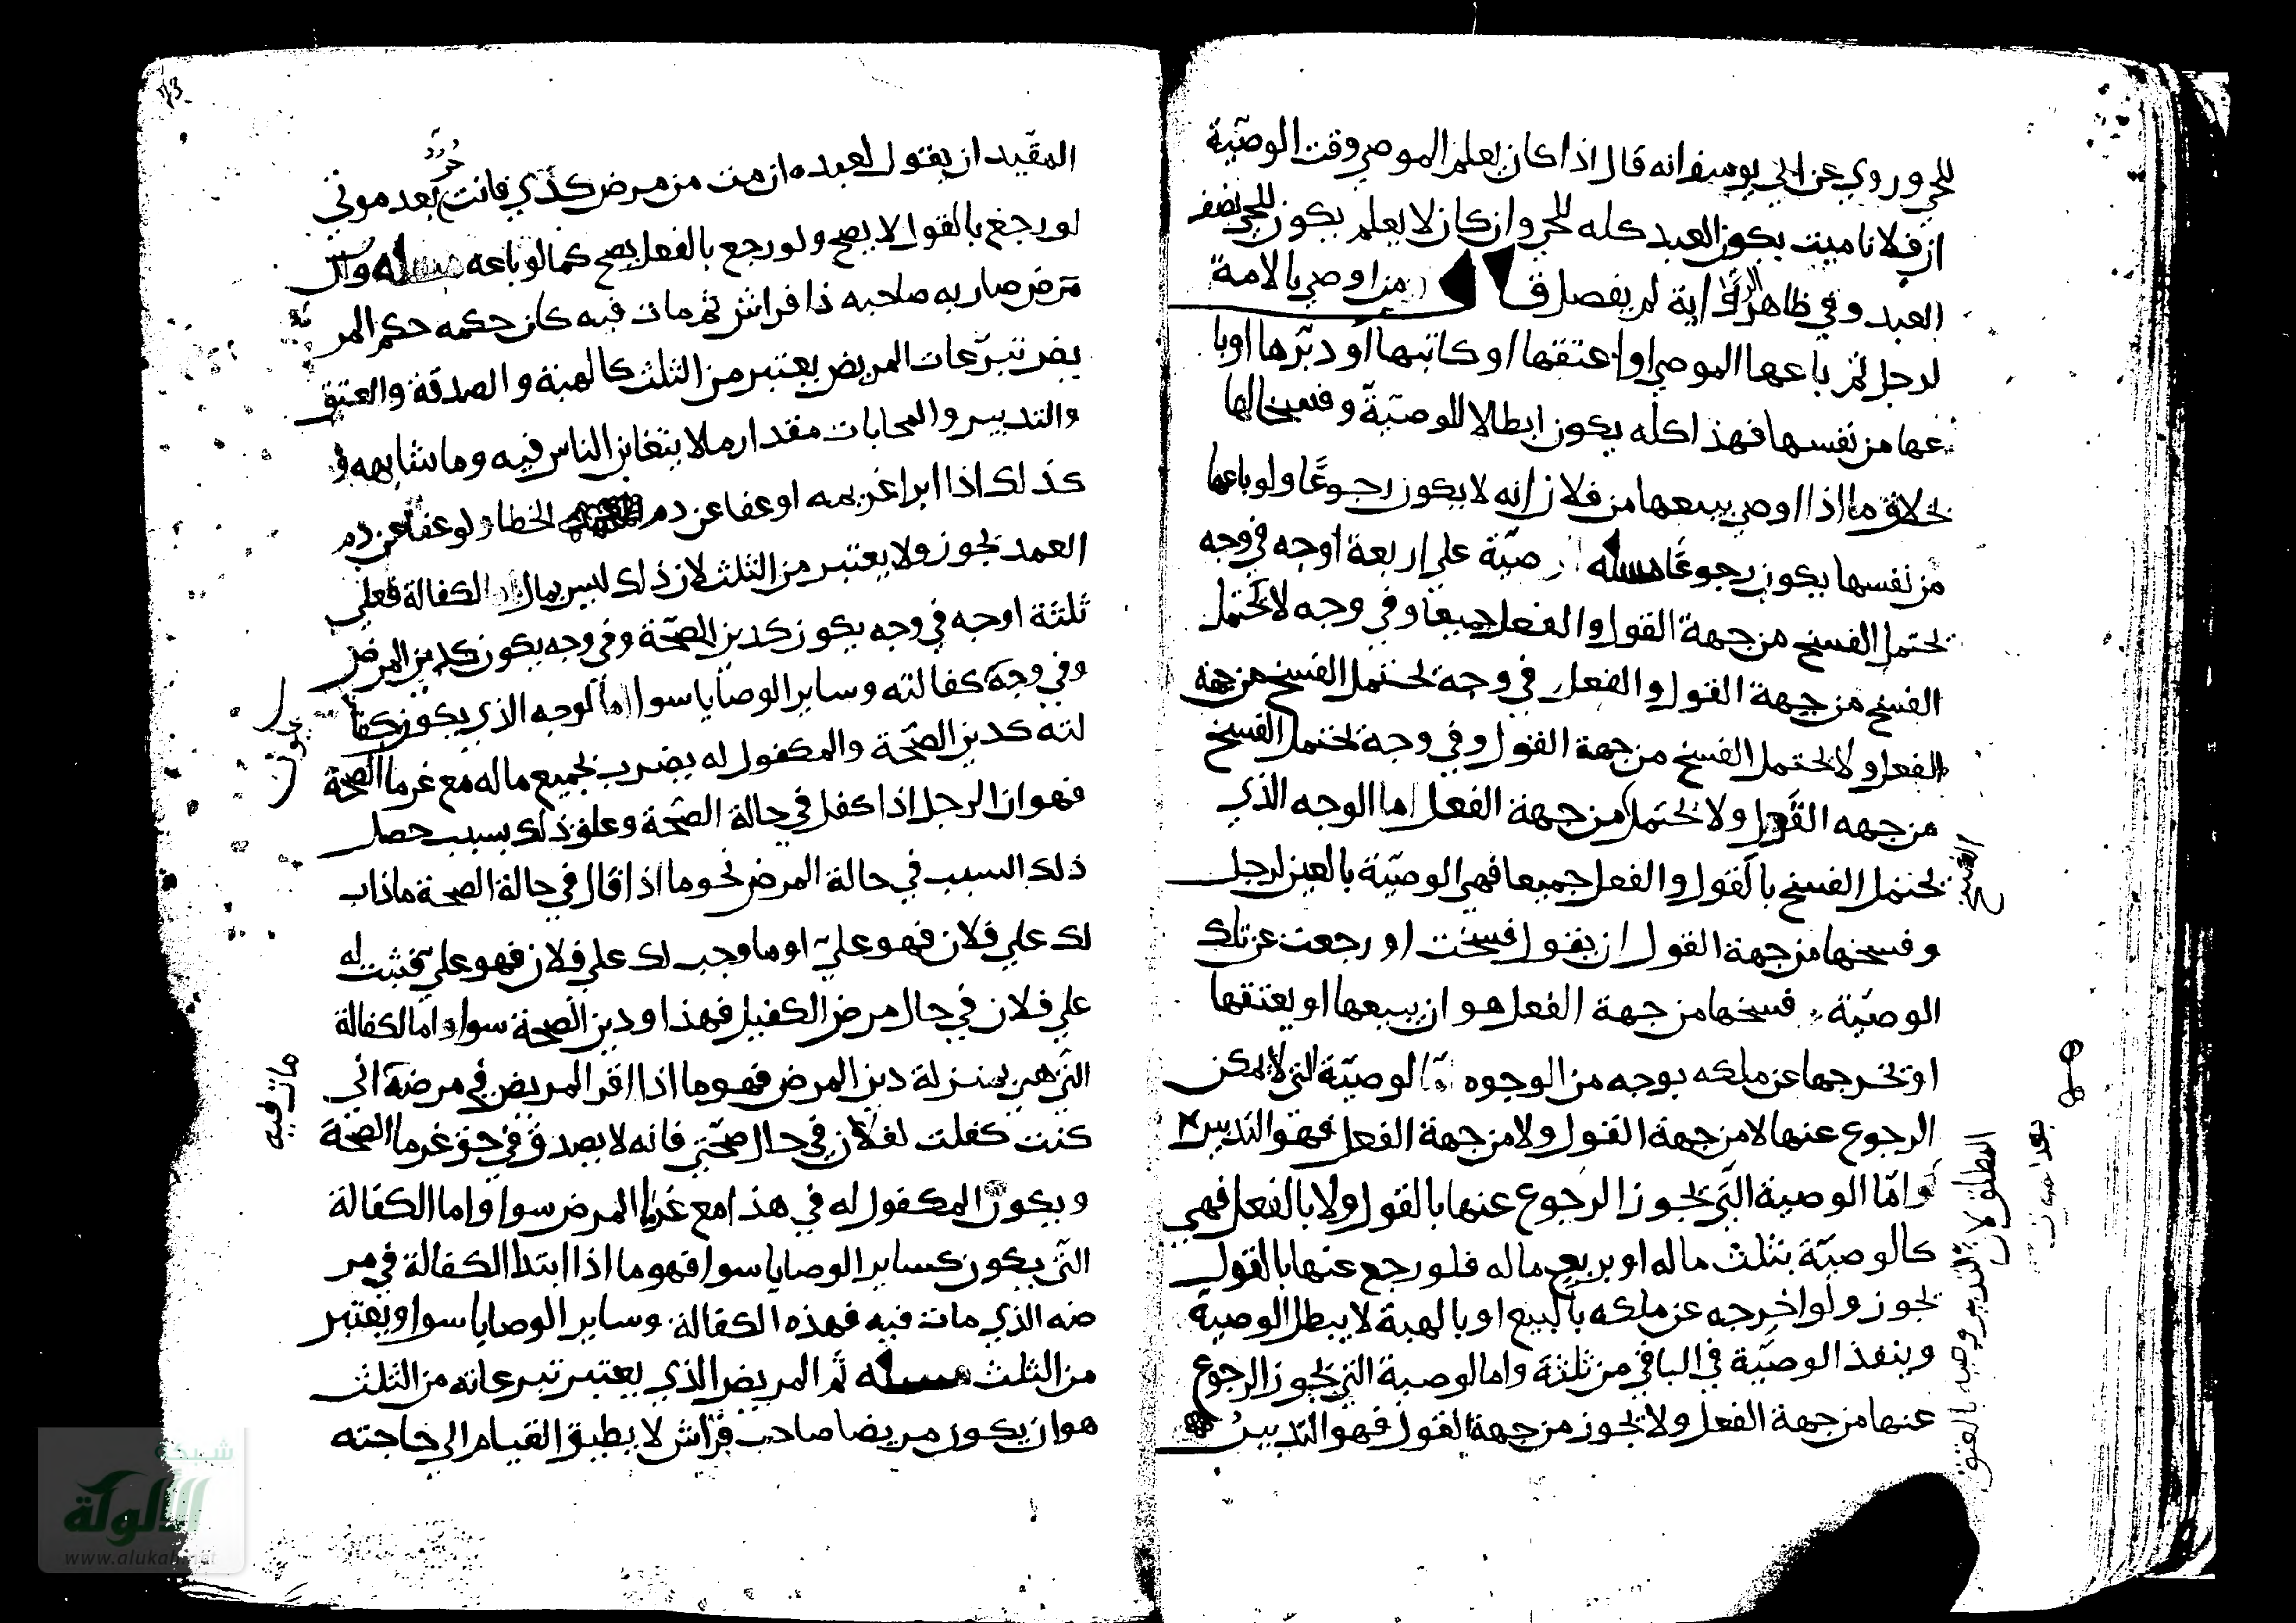 للحي وروي عن ابي يوسف انه قال اذا كان يعلم الموصي وقت الوصيّة
ان فلانا ميت يكون العبد كله للحي وان كان لا يعلم يكون للحي نصف
العبد وفي ظاهر الرواية لم يفصل ومن اوصي بالامة
لرجل ثم باعها الموصي او اعتقها او كاتبها او دبّرها او با
عها من نفسها فهذا كله يكون ابطالا للوصيّة وفسخا لها
بخلاف ما اذا اوصي ببيعها من فلان انه لا يكون رجوعًا ولو باعها
من نفسها يكون رجوعًا مسئلة الوصيّة علي اربعة اوجه في وجه
يحتمل الفسخ من جهة القول والفعل جميعا وفي وجه لا يحتمل
الفسخ من جهة القول والفعل وفي وجه يحتمل الفسخ من جهة
الفعل ولا يحتمل الفسخ من جهة القول وفي وجه يحتمل الفسخ
من جهه القول ولا يحتمل من جهة الفعل اما الوجه الذي
الفسخ
يحتمل الفسخ بالقول والفعل جميعا فهي الوصيّة بالعين لرجل
وفسخها من جهة القول ان يقول فسخت او رجعت عن تلك
الوصيّة وفسخها من جهة الفعل هو ان يبيعها او يعتقها
او يخرجها عن ملكه بوجه من الوجوه واما الوصيّة التي لا يمكن
الرجوع عنها لا من جهة القول ولا من جهة الفعل فهو التدبير
المطلق لان التدبير وصيه بالعتق
واما الوصية التي يجوز الرجوع عنها بالقول ولا بالفعل فهي
كالوصيّة بثلث ماله او بربع ماله فلو رجع عنها بالقول
يجوز ولو اخرجه عن ملكه بالبيع او بالهبة لا يبطل الوصية
وينفذ الوصيّة في الباقي من ثلثة واما الوصية التي يجوز الرجوع
عنها من جهة الفعل ولا يجوز من جهة القول فهو التدبير
73
المقيد ان يقول لعبده ان مت من مرض كذي فانت حر بعد موتي
لو رجع بالقول لا يصح ولو رجع بالفعل يصح كما لو باعه مسئلة وكل
مرض صار به صاحبه ذا فراش ثم مات فيه كان حكمه حكم المر
يض تبرّعات المريض يعتبر من الثلث كالهبة والصدقة والعتق
والتدبير والمحابات مقدار ما لا يتغابن الناس فيه وما شابهه و
كذلك اذا ابرا غريمه او عفا عن دم الخطا ولو عفا عن دم
العمد يجوز ولا يعتبر من الثلث لان ذلك ليس بمال الكفالة فعلي
ثلثة اوجه في وجه يكون كدين الصّحة وفي وجه يكون كدين المرض
وفي وجه كفالته وساير الوصايا سوا اما الوجه الذي يكون كفا
لته كدين الصّحة والمكفول له يضرب بجميع ماله مع غرما الصحة
فهو ان الرجل اذا كفل في حالة الصّحة وعلق ذلك بسبب حصل
ذلك السبب في حالة المرض نحو ما اذا قال في حالة الصحة ما ذاب
لك علي فلان فهو عليّ او ما وجب لك علي فلان فهو عليّ فثبت له
علي فلان في حال مرض الكفيل فهذا ودين الصحة سوا واما الكفالة
التي هي بمنزلة دين المرض فهو ما اذا اقر المريض في مرضه اني
مات فيه
كنت كفلت لفلان في حال صحّتي فانه لا يصدق في حق غرما الصحة
ويكون المكفول له في هذا مع غرما المرض سوا واما الكفالة
التي يكون كساير الوصايا سوا فهو ما اذا ابتدا الكفالة في مر
ضه الذي مات فيه فهذه الكفالة وساير الوصايا سوا ويعتبر
من الثلث مسئلة ثم المريض الذي يعتبر تبرعاته من الثلث
هو ان يكون مريضا صاحب فراش لا يطيق القيام الي حاجته
شبكة
الألوكة
www.alukah.net